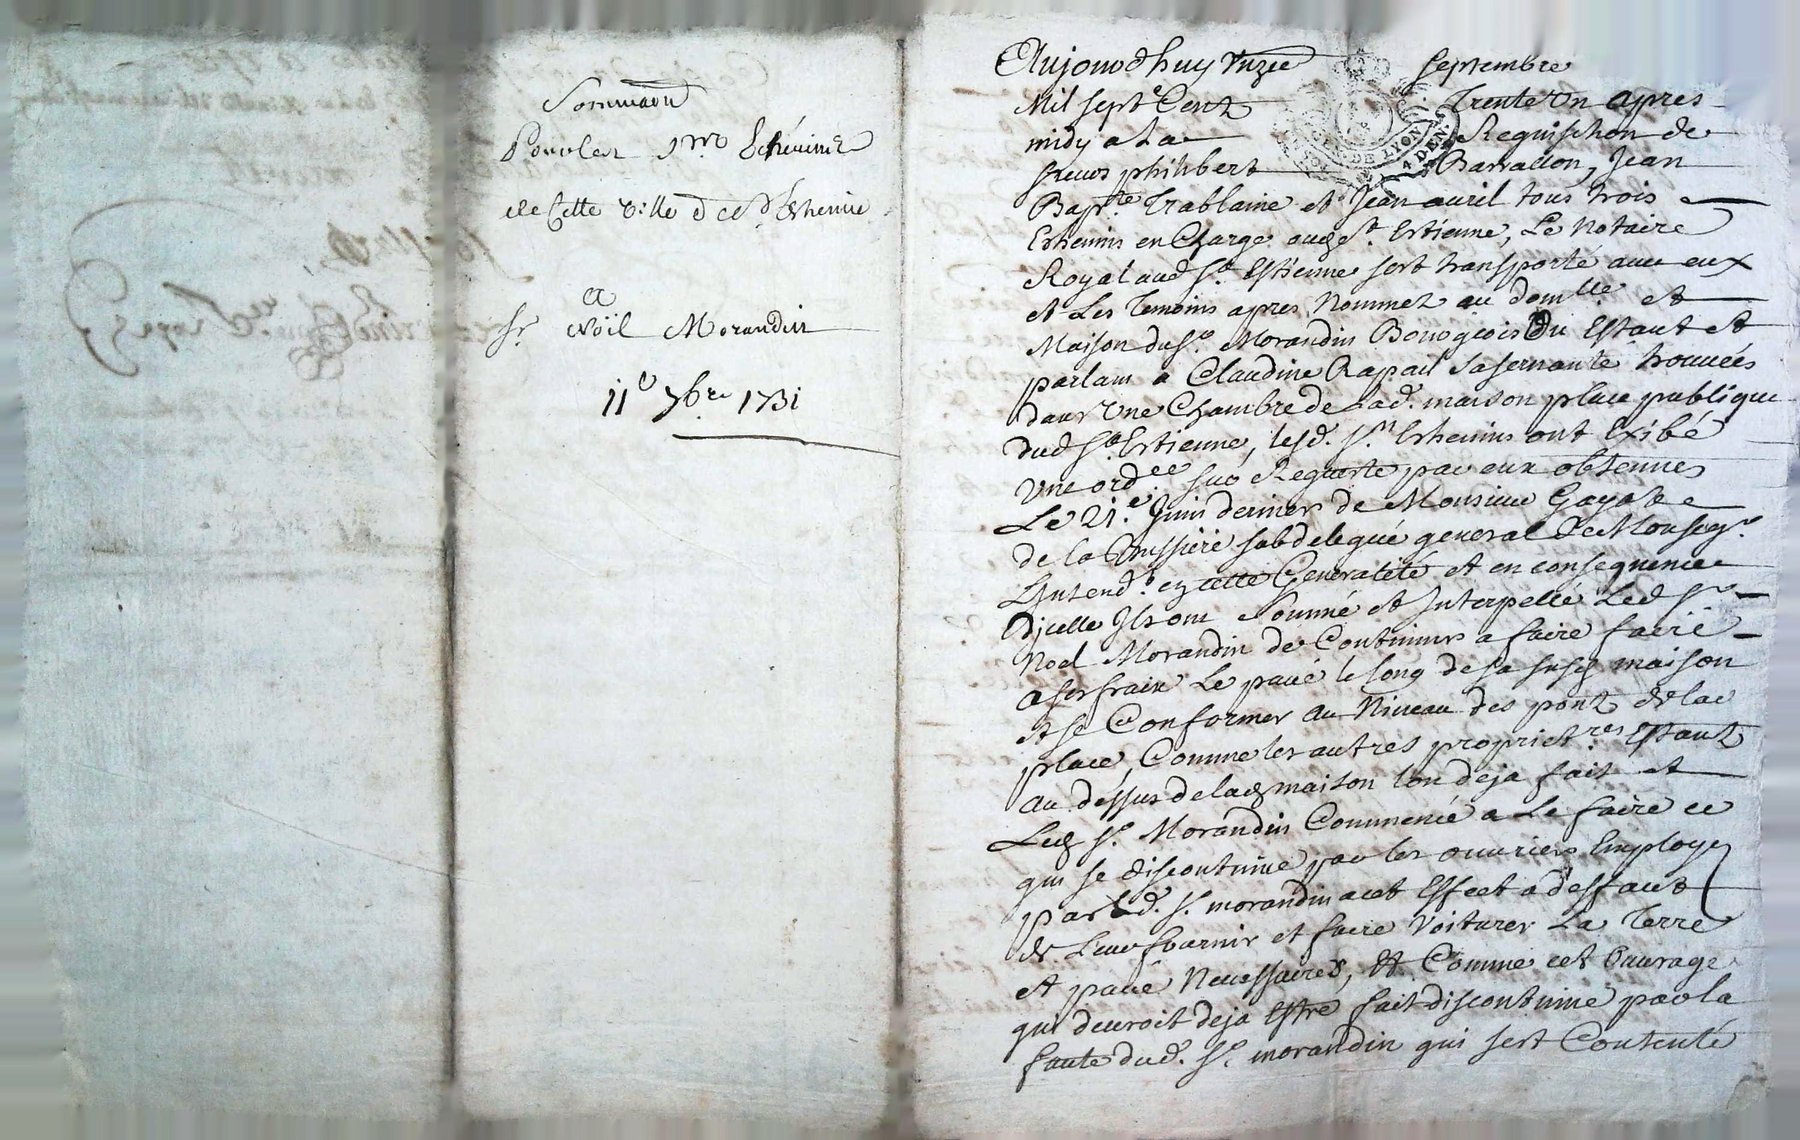 Sommaon
Pour les Srs Echevins
de Cette ville de St Estienne
et
Sr. Noël Morandin
11e 7bre 1731
Aujourdhuy Unze Septembre
Mil sept Cent Trente Un apres
midy a La Requisition de
sieurs philibert Barrallon, Jean
Baptte Trablaine et Jean auril tous trois
Echevins en Charge aud St. Estienne, Le Notaire
Royal aud St Estienne sest transporté avec eux
et Les Temoins apres Nommez au domlle et
Maison du Sr. Morandin Bourgeois du Estant et
parlant a Claudine Rapail sa servante trouuée
dans Une Chambre de Lad. maison place publique
dud St Estienne, lesd. Srs Echevins ont Exibé
Une ordce sur Requeste par eux obtenue
Le 21e Juin dernier de Monsieur Gayot
de la Bussiere subdelegué general de Monseigr
Lintendt en cette Generalité et en consequence
Dicelle Ils ont Sommé et Interpellé Led Sr
Noel Morandin de Continuer a faire faire
a ses fraix Le paué le long de sa susd maison
et se Conformer au Niueau des pont de la
place, Comme les autres proprietres Estant
au dessus de lad maison lon deja fait et
Led Sr. Morandin Commencé a Le faire ce
qui se discontinue par les ouuriers Employe
par Led. Sr. morandin acet Effect a deffaut
de Leur fournir et faire Voiturer La Terre
et paué Necessaires, Et Comme cet Ouurage
qui deuroit deja Estre fait discontinue par la
faute dud. Sr. morandin qui sest Contenté
4 DEN.
DE LYON